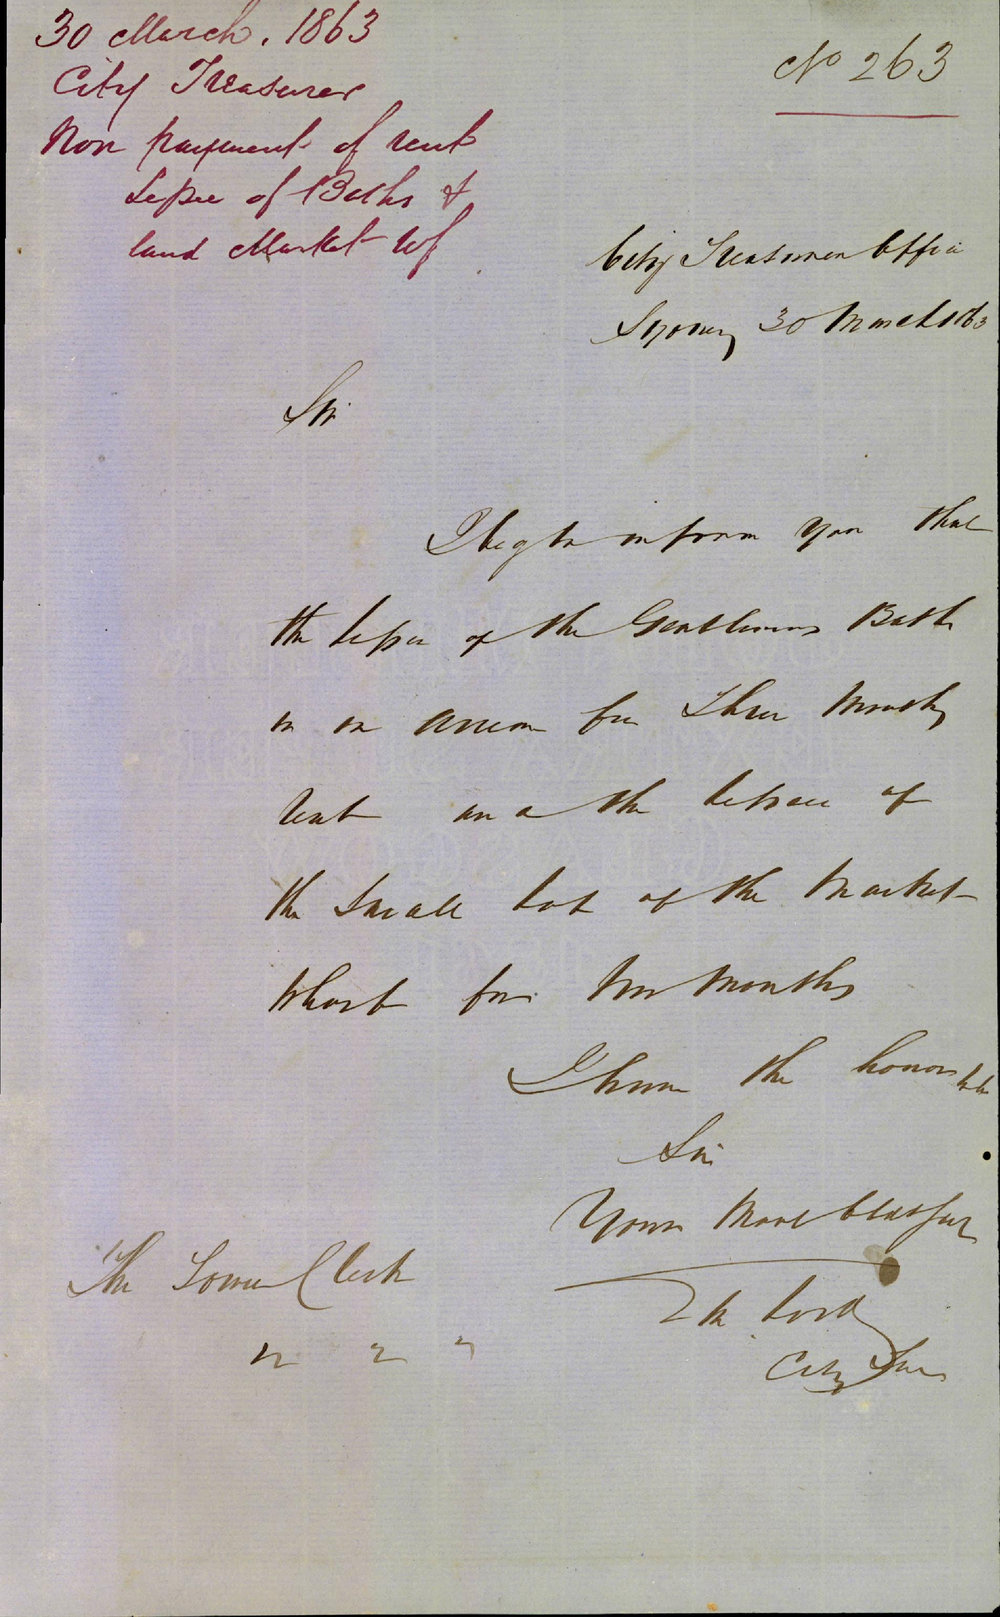 30 March. 1863
City Treasurer
Non payment of rent
Lessee of Baths &
land Market Wf
No 263
City Treasurers Office
Sydney 30 March 1863
Sir
I beg to inform you that
the Lessee of the Gentlemens Baths
is in arrear for Three Months
Rent and the Lessee of
the Small Lot of the Market
Wharf for two Months
I have the honor to be
Sir
Your Most Obt Sert
The Town Clerk
City Treas